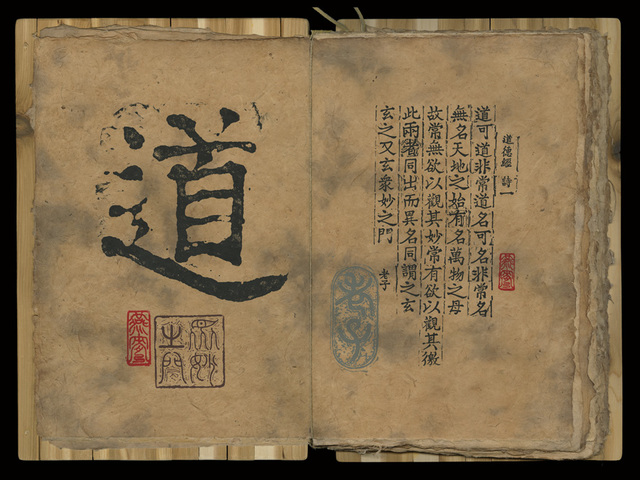 道德經 詩一
道可道非常道名可名非常名
無名天地之始有名萬物之母
故常無欲以觀其妙常有欲以觀其徼
此兩者同出而異名同謂之玄
玄之又玄衆妙之門
老子
老子
道
衆妙
之門